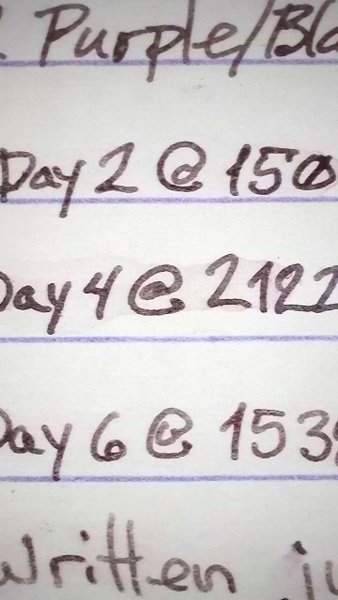 Purple/Bla
Day 2 @ 150
Day 4 @ 2122
Day 6 @ 153
Written ju